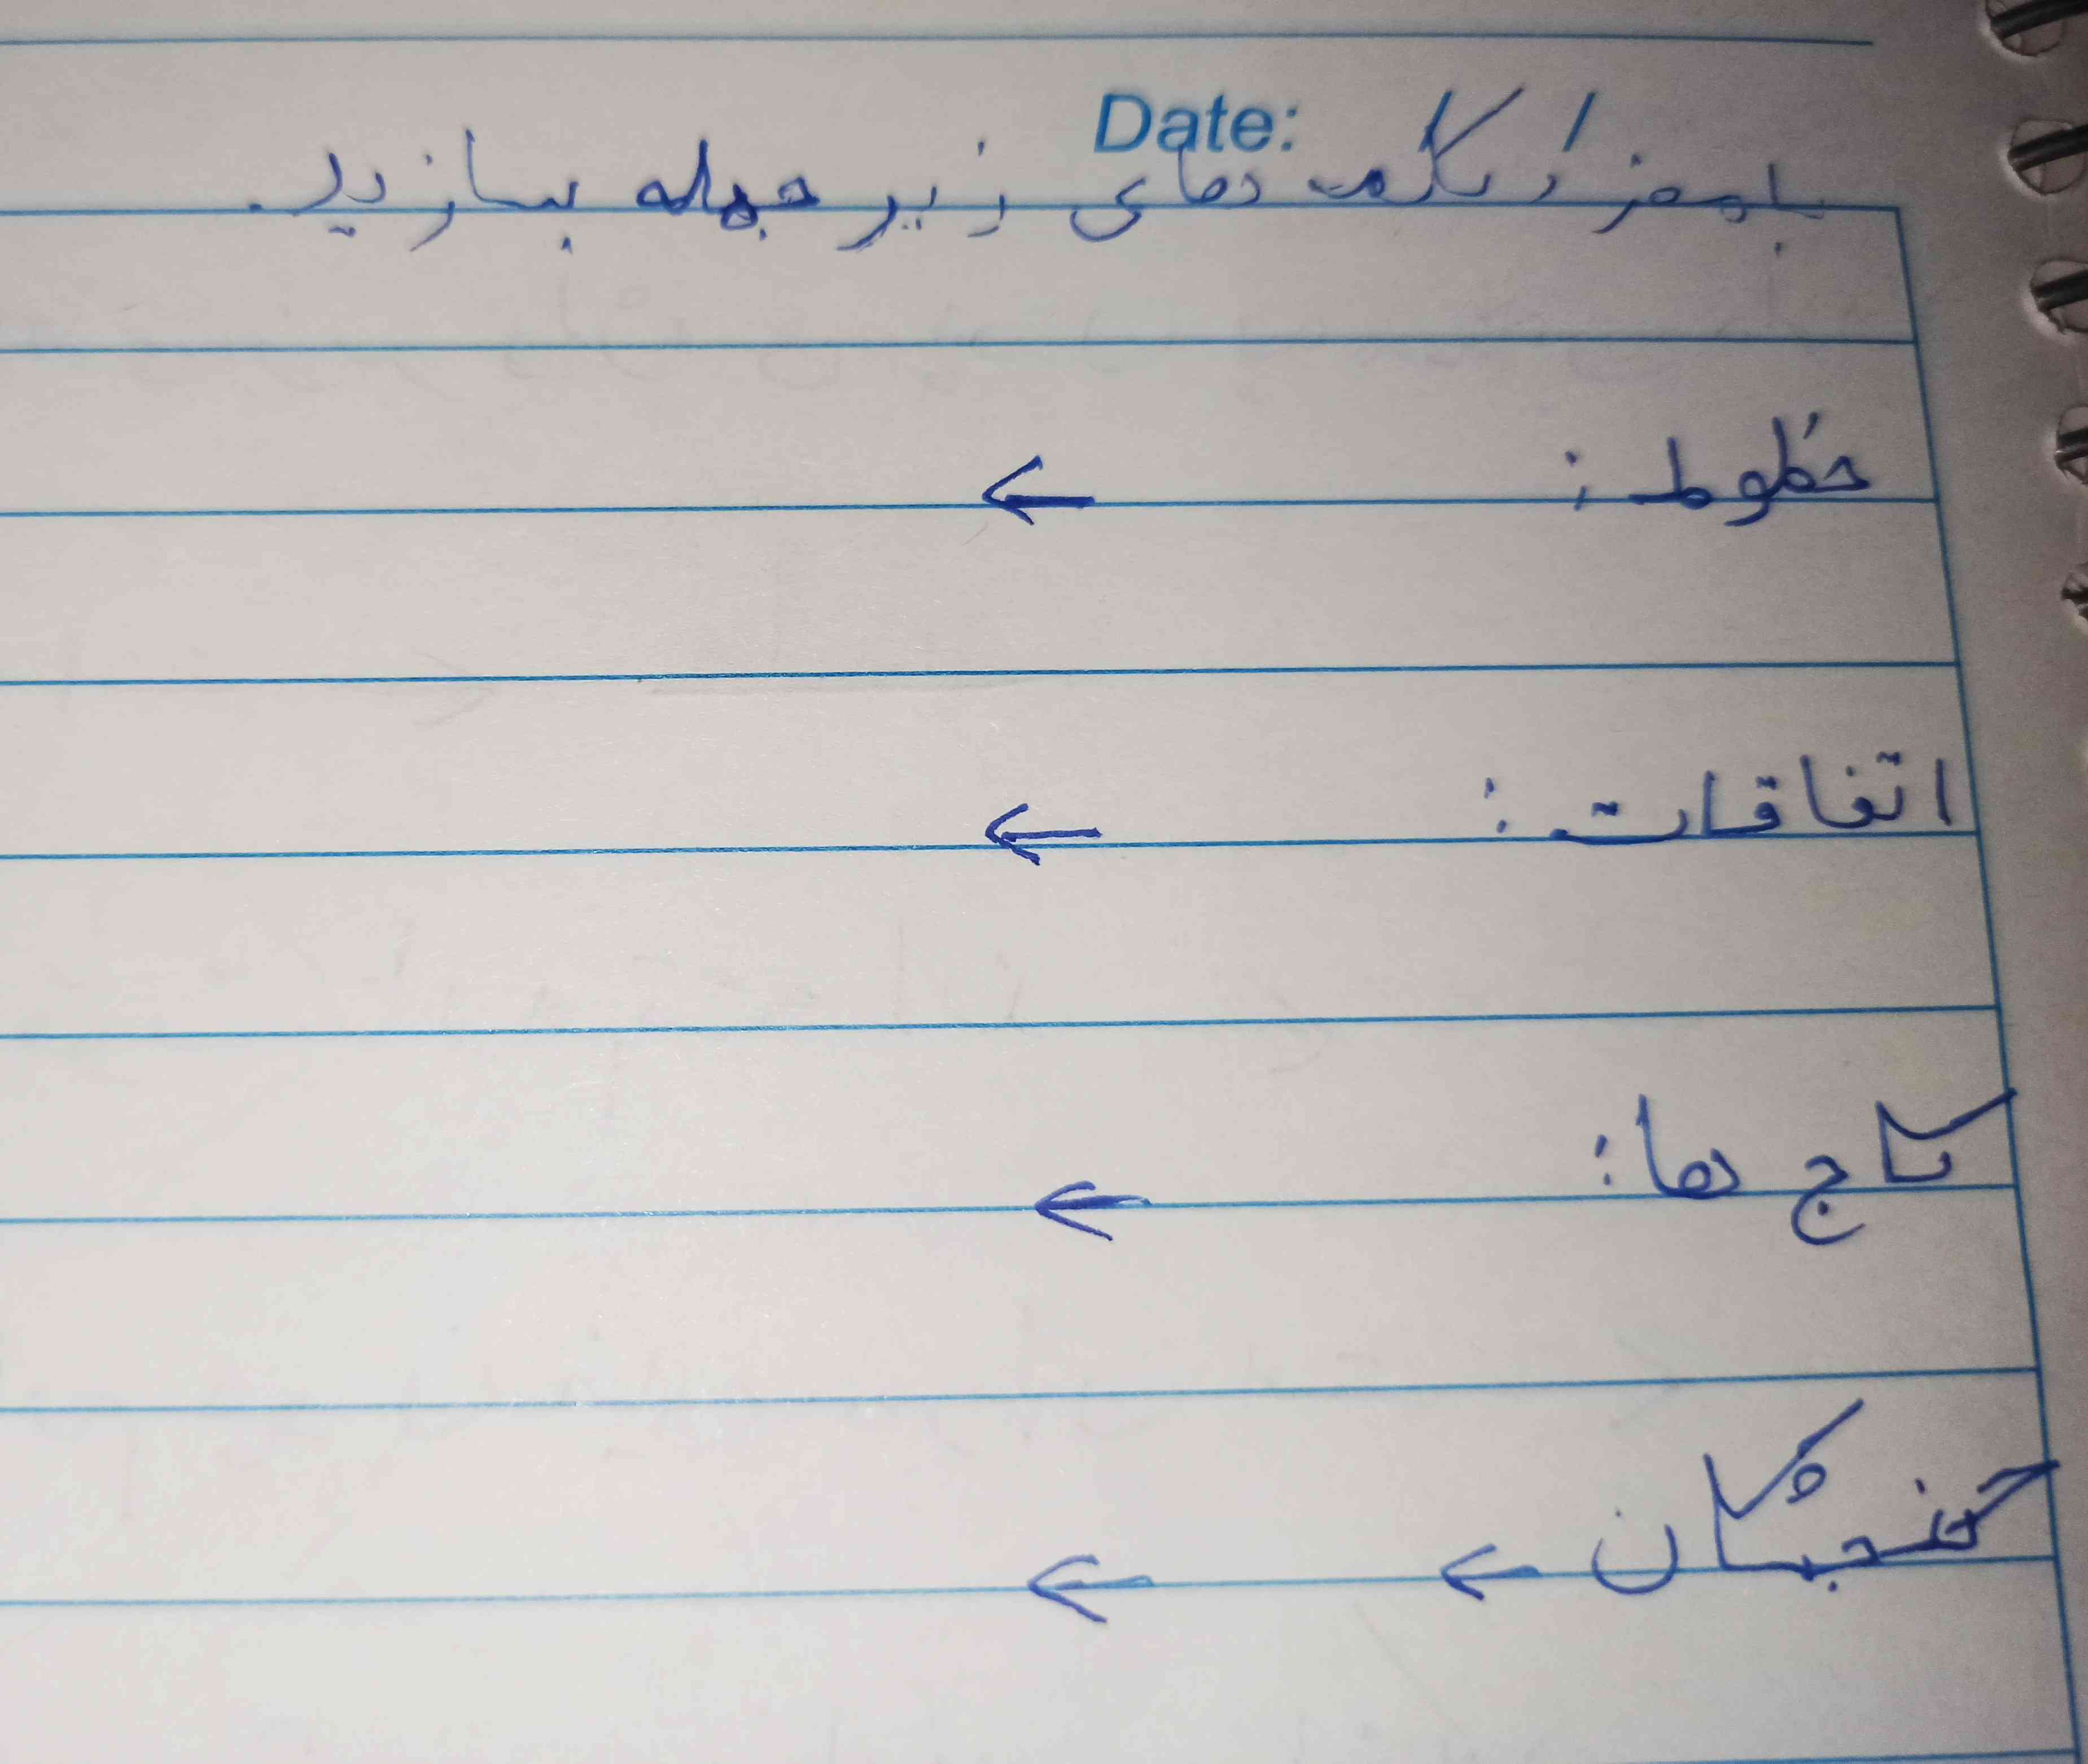 Date: / /
با مفرد کلمه های زیر جمله بسازید.
خطوط : ←
اتفاقات : ←
کاج ها: ←
گنجشکان ← ←